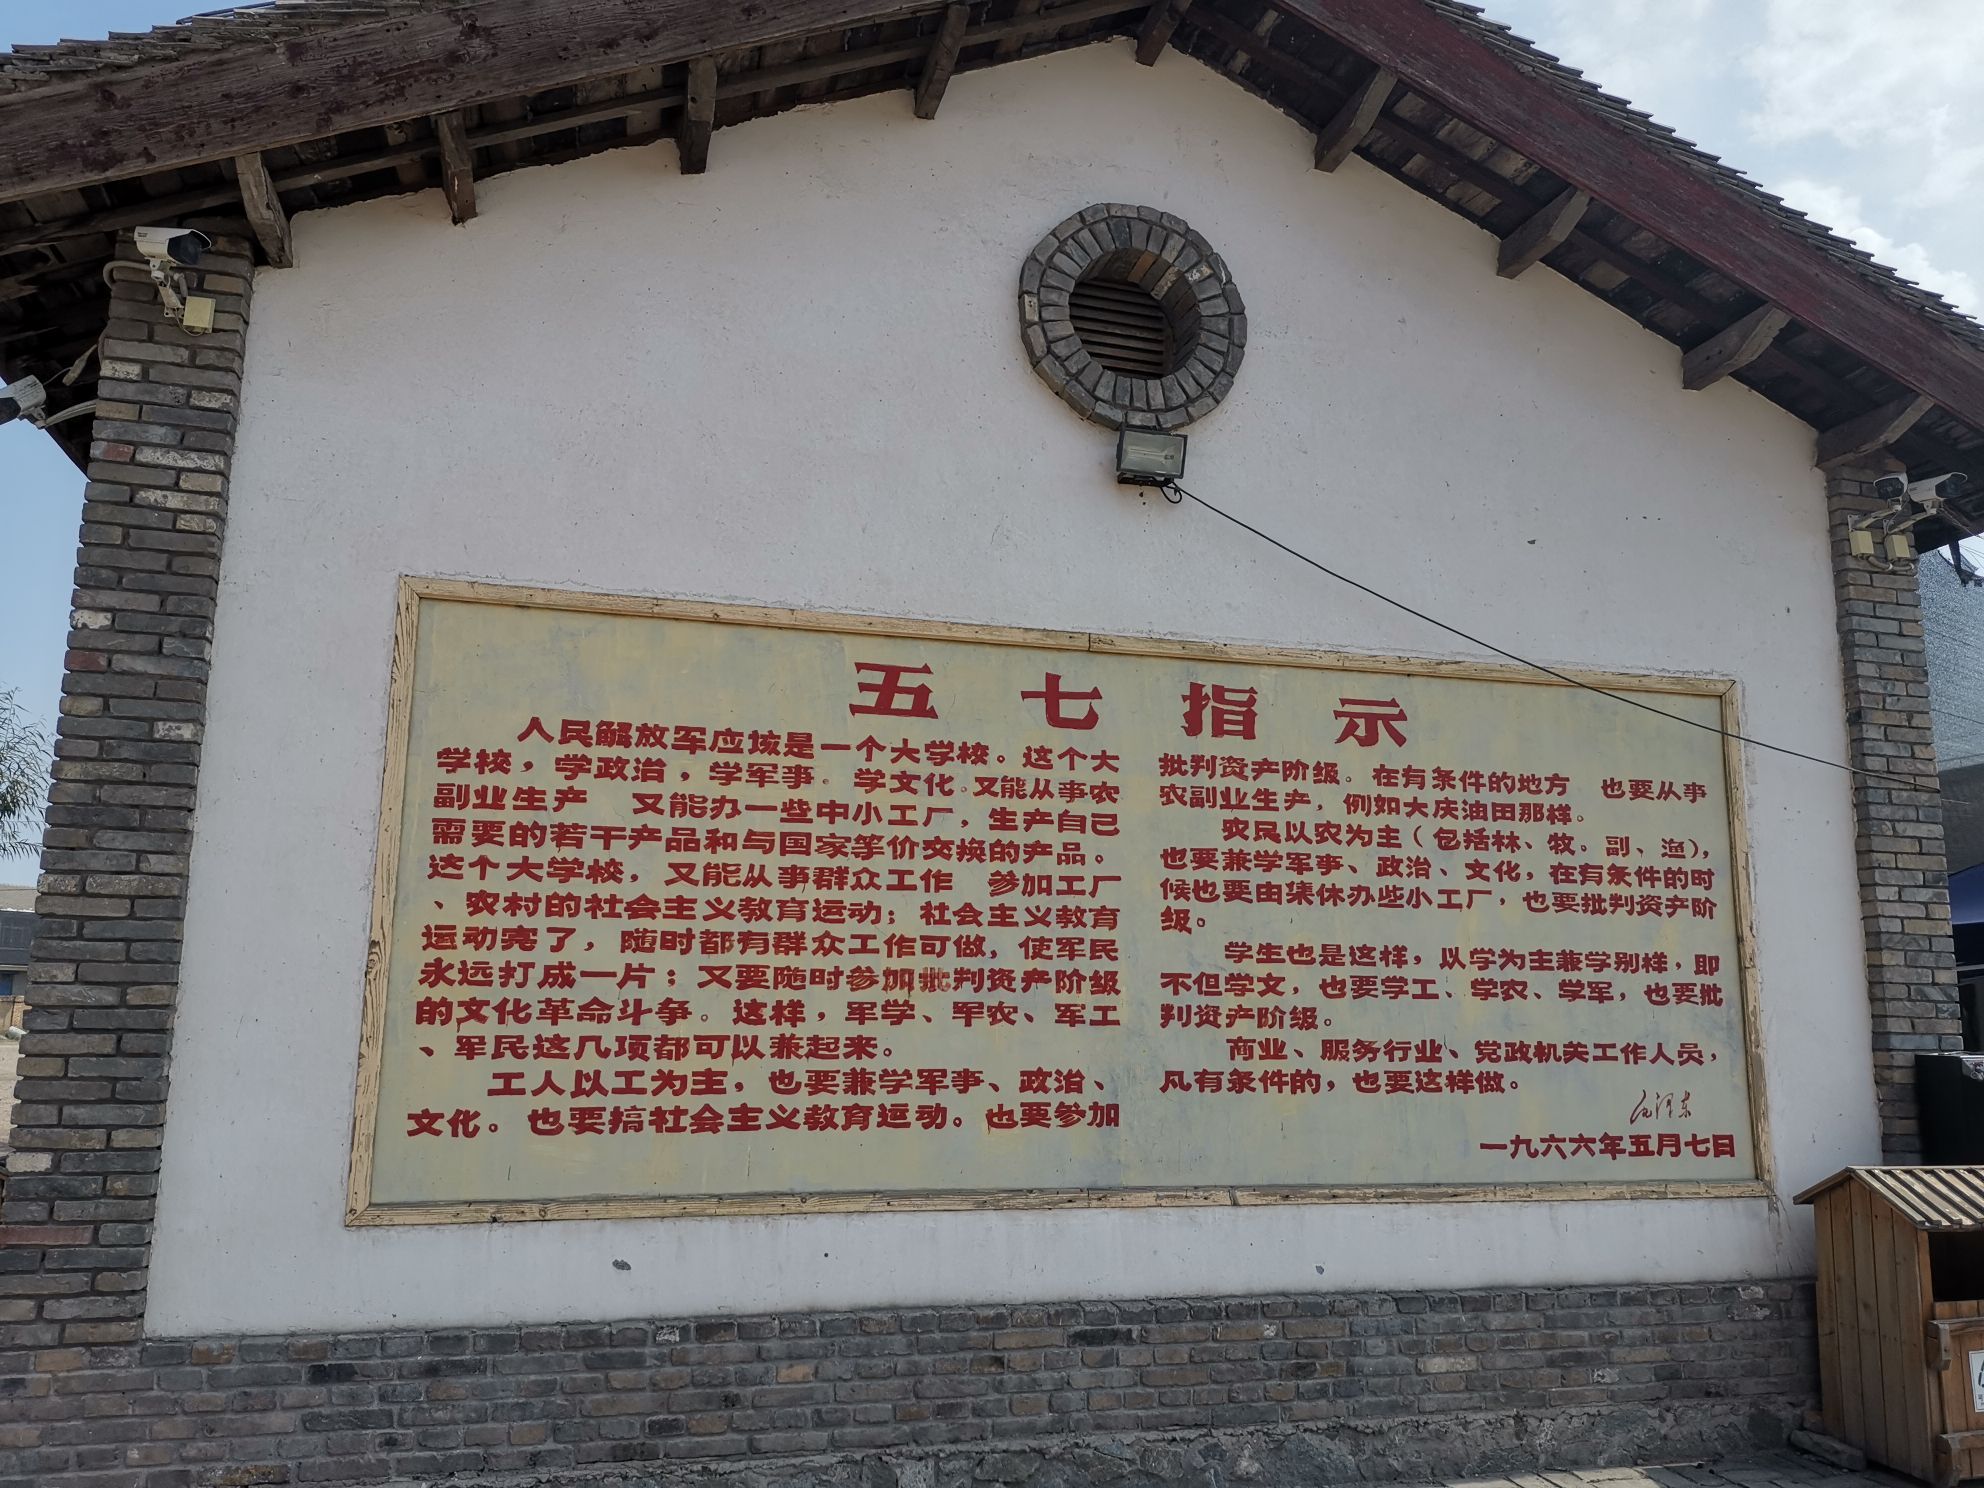 五七指示
人民解放军应该是一个大学校。这个大
学校，学政治，学军事。学文化。又能从事农
副业生产 又能办一些中小工厂，生产自己
需要的若干产品和与国家等价交换的产品。
这个大学校，又能从事群众工作 参加工厂
、农村的社会主义教育运动；社会主义教育
运动完了，随时都有群众工作可做，使军民
永远打成一片；又要随时参加批判资产阶级
的文化革命斗争。这样，军学、军农、军工
、军民这几项都可以兼起来。
工人以工为主，也要兼学军事、政治、
文化。也要搞社会主义教育运动。也要参加
批判资产阶级。在有条件的地方 也要从事
农副业生产，例如大庆油田那样。
农民以农为主（包括林、牧。副、渔），
也要兼学军事、政治、文化，在有条件的时
候也要由集体办些小工厂，也要批判资产阶
级。
学生也是这样，以学为主兼学别样，即
不但学文，也要学工、学农、学军，也要批
判资产阶级。
商业、服务行业、党政机关工作人员，
凡有条件的，也要这样做。
毛泽东
一九六六年五月七日